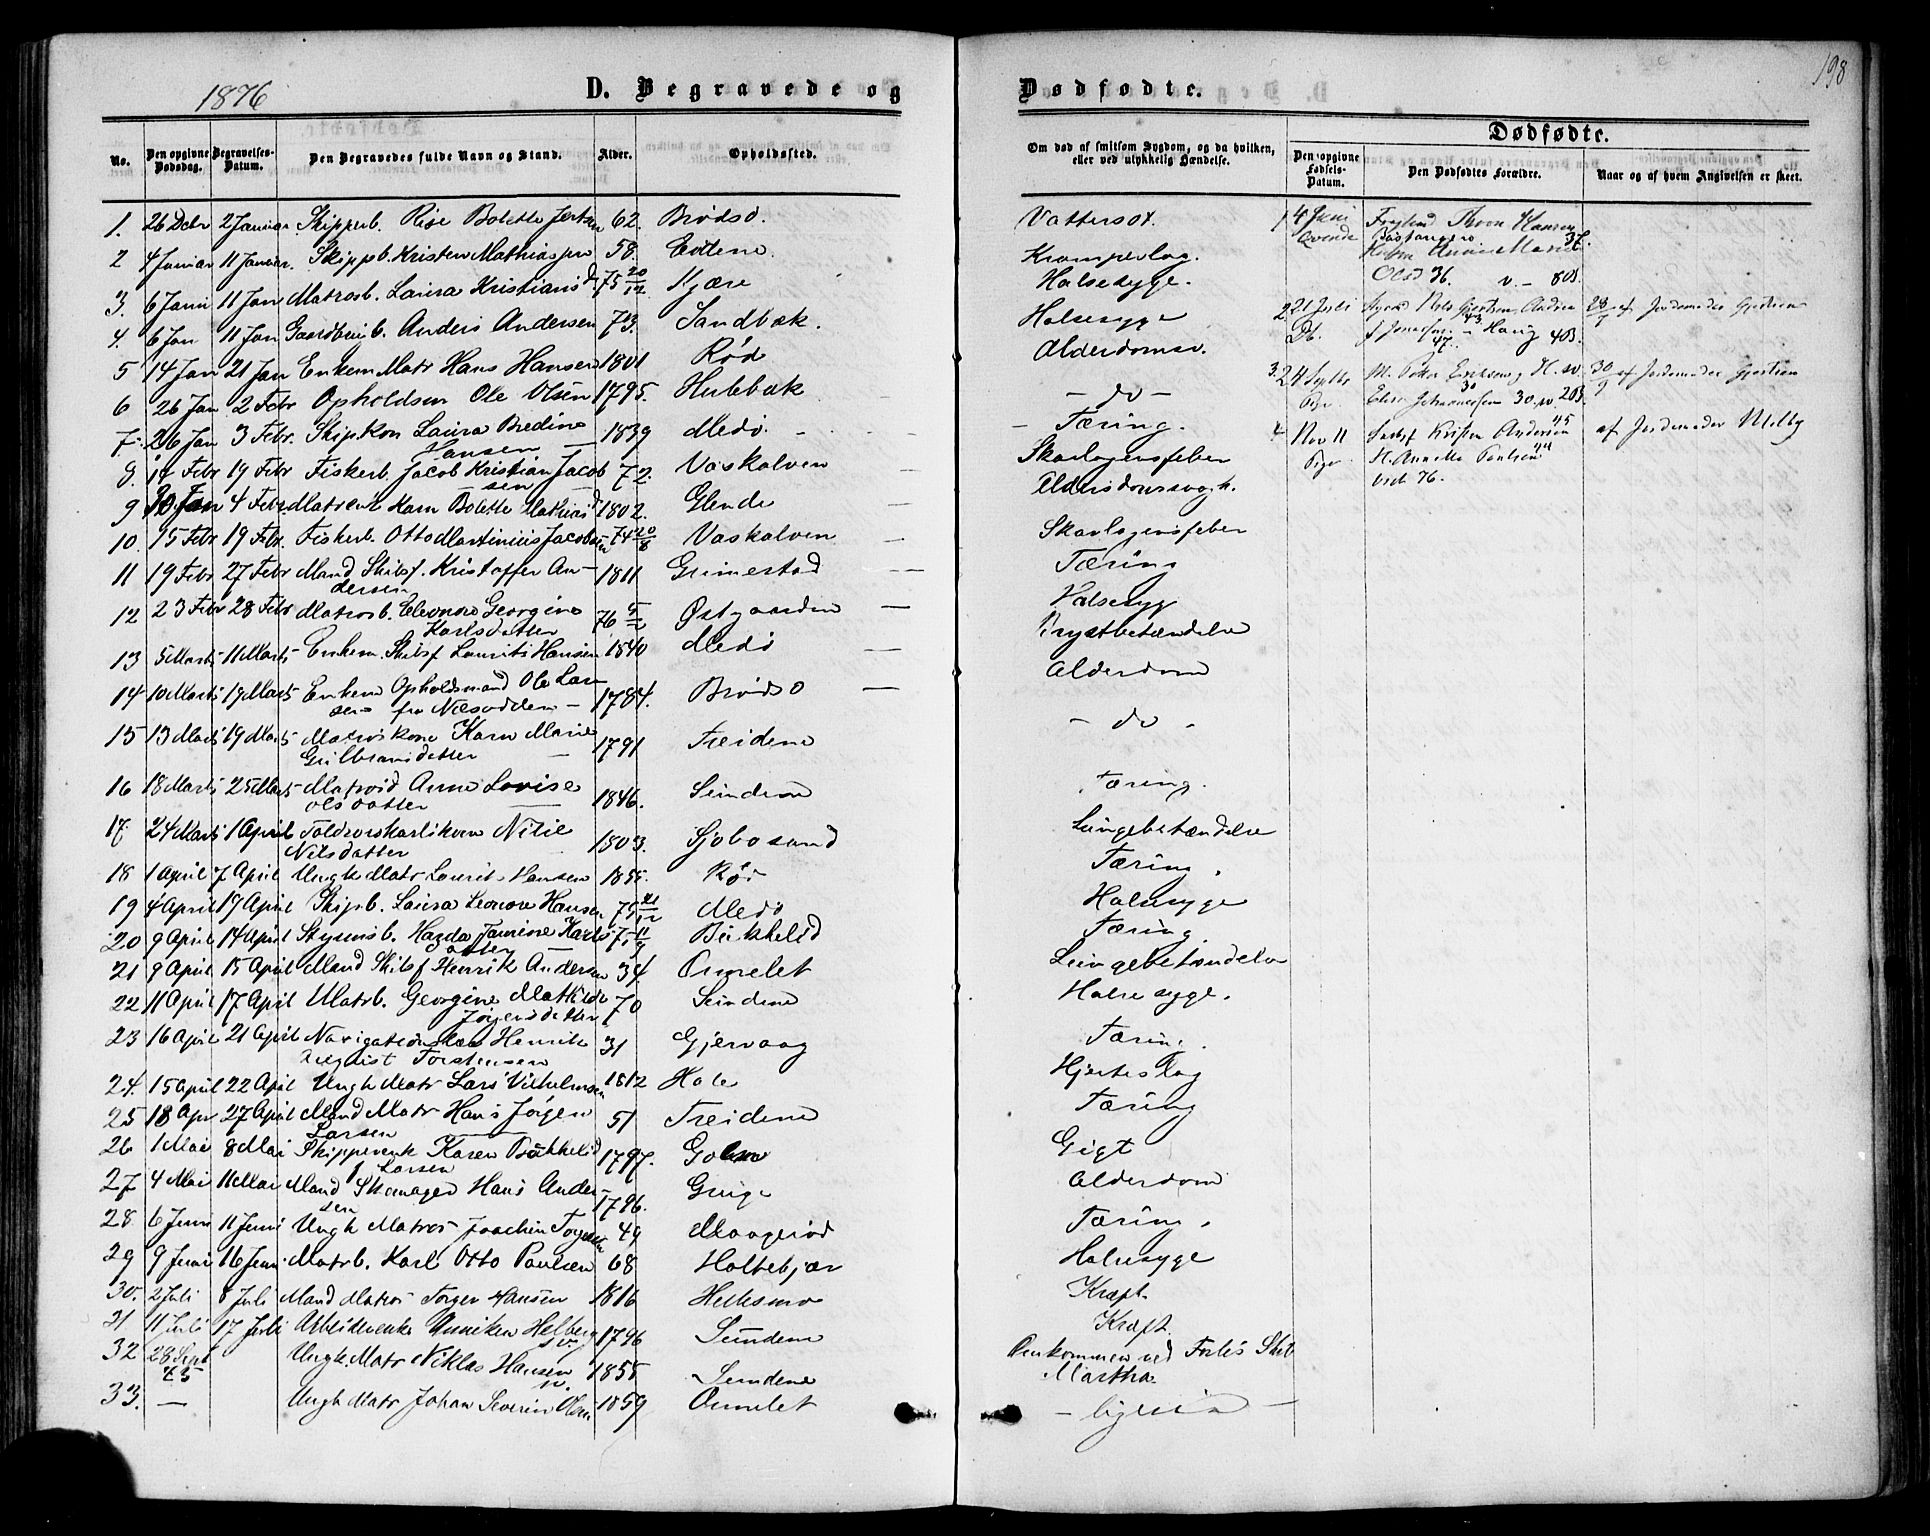 1876
D. Begravede og
No.
Den opgivne Dødsdag.
Begravelses-Datum.
Den Begravedes fulde Navn og Stand.
Alder.
Opholdssted.
1. 26 Decbr 2 Januar. Skipperb. Bolette 62. Brødsø.
2 4 Januar 11 Januar. Skippb. Kristen Mathiassen 58. Eidene.
3. 6 Janu 11 Jan Matrosb. Laura Kristiansd 75 20/12 Kjære
4. 6 Jan 11 Jan Gaardbrugb. Anders Andersen 73. Sandbæk.
5 14 Jan 21 Jan Enkem Matr Hans Hansen 1801 Rød
6 26 Jan 2 Febr Opholdsm Ole Olsen 1795. Hulebak
7. 26 Jan 3 Febr. Skipkon Laura Bredine 1839 Medø.
Hansen
8. 14 Febr 19 Febr. Fiskerb. Jacob Kristian Jacob 72. Vaskalven
sen
9 30 Jan 4 Febr Matrenk Karn Bolette Mathiasd 1802. Glende
10. 15 Febr 19 Febr. Fiskerb. Otto Martinius Jacobsen 74 20/8 Vaskalven
11 19 Febr 27 Febr Mand Skibsf. Kristoffer An- 1811 Grimestad
dersen
12 23 Febr 28 Febr Matrosb. Eleonore Georgine 76 5/2 Østgaarden
Karlsdatter
13 5 Marts 11 Marts Enkem. Skibsf Laurits Hansen 1840 Medø
14 10 Marts 19 Marts Enkem Opholdsmand Ole Lar 1784. Brødsø
sen fra Næsodden
15 13 Marts 19 Marts Matroskone Karn Marie 1791 Treidene
Gulbransdatter
16 18 Marts 25 Marts Matrosd Anne Lovise 1846. Sundene
Olsdatter
17. 24 Marts 1 April Toldroerskarlskone Nilie 1803. Sjobosand
Nilsdatter
18 1 April 7 April Ungk Matr Laurits Hansen 1855. Rød
19 4 April 19 April Skipsb. Laura Leonore Hansen 75 21/12 Medø
20 9 April 14 April Styrmsb. Hagda Jamine Karls 75 11/9 Bekkelid
datter
21 9 April 15 April Mand Skibsf Henrik Andersen 34 Omelet
22 11 April 17 April Matrb. Georgine Mathilde 70 Sundene
Jørgensdatter
23 16 April 21 April Navigationslær Henrik 31 Gjervaag
Torstensen
24. 15 April 22 April Ungk Matr Lars Vilhelmsen 1812 Hole
25 18 Apr 27 April Mand Matr Hans Jørgen 51 Treidene
Larsen
26 1 Mai 8 Mai Skipperenk Karen Bækkelid 1797. Golen
Larsen
27 4 Mai 11 Mai Mand Skomager Hans Ander- 1796. Gruge
sen
28 6 Juni 11 Juni Ungk Matros Joachim Torgersen 49 Maagerød
29 9 Juni 16 Juni Matrb. Karl Otto Paulsen 68 Holtebjær
30. 2 Juli 8 Juli Mand Matros Torger Hansen 1816 Heltesmo
31 11 Juli 17 Juli Arbeiderenke Anniken Helberg 1796 Sundene
32 28 Sept Ungk. Matr Niklas Hansen 1855 Sundene
75
33. — Ungk Matr Johan Severin Olsen 1859 Omelet
Dødfødte.
198
Om død af smitsom Sygdom, og da hvilken, eller ved ulykkelig Hændelse.
Dødfødte.
Den opgivne Fødsels-Datum.
Den Dødfødtes Forældre.
Naar og af hvem Angivelsen er skeet.
Vattersot.
Krampeslag.
Halsesyge.
Halsesyge
Alderdomsv.
— do —
Tæring.
Skarlagensfeber
Alderdomssvagh.
Skarlagensfeber
Tæring
Halsesyg
Brystbetændelse
Alderdom
— do -
Tæring.
Lungebetændelse
Tæring.
Halsesyge
Tæring
Lungebetændelse
Halsesyge.
Tæring.
Hjerteslag
Tæring
Gigt
Alderdom
Tæring.
Halsesyge
Kræft.
Kræft.
Omkommen ved Forlis Skib
Martha
— ligesaa —
1 4 Juni Thron Hansen
Qvinde 37.
Anne Marie
Olsd 36. v. — 80S.
2 21 Juli Nils Gjertsen, Andrea 28/7 af Jordemoder Gjertsen
Dt. 47. — Haug 40S.
3. 24 Septbr M. Peter Eriksen, H. 30/9 af Jordemoder Gjertsen
Pige 30 30. v. 20S.
4 Nov 11 Kristen Andersen 45 af Jordemoder Melby
Pige H. Anne Ma Paulsen 44
76.